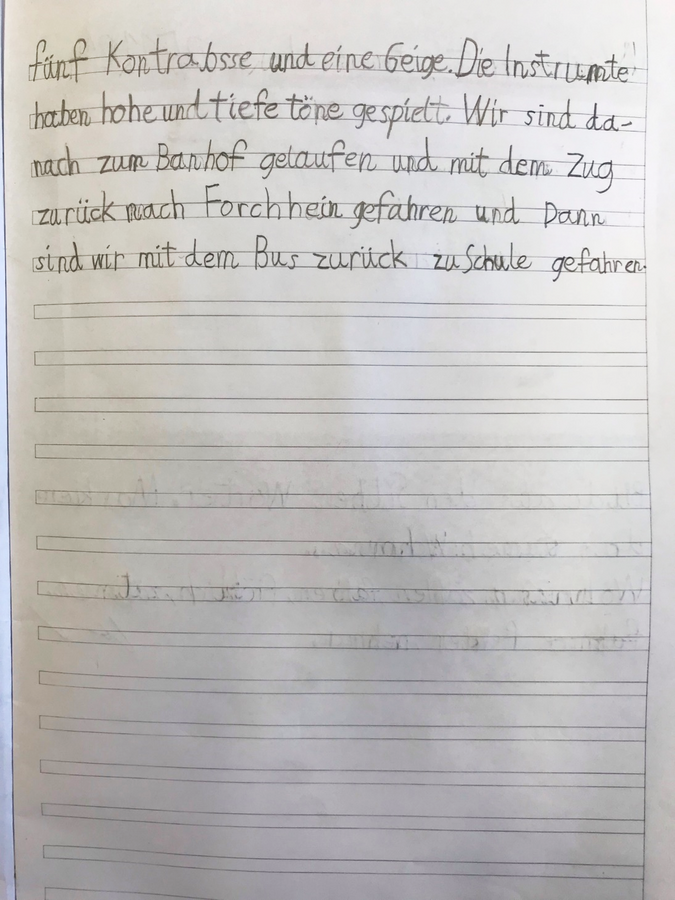 fünf Kontrabsse und eine Geige. Die Instrumte
haben hohe und tiefe töne gespielt. Wir sind da-
nach zum Banhof gelaufen und mit dem Zug
zurück nach Forchhein gefahren und Dann
sind wir mit dem Bus zurück zu Schule gefahren.